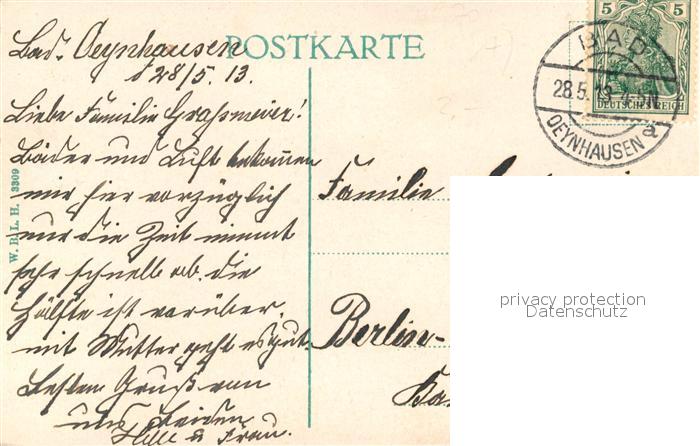 Bad-Oeynhausen
d 28/5. 13.
POSTKARTE
Liebe Familie Graßmeier!
Bäder und Luft bekommen
mir hier vorzüglich
nur die Zeit nimmt
sehr schnell ab. die
Hälfte ist vorüber,
mit Mutter geht es gut.
Besten Gruß von
uns beiden
u Frau.
W. B. L. H. 3309
5 5
DEUTSCHES REICH
BAD
28.5.13. 4-5N
OEYNHAUSEN
Familie
Berlin-
privacy protection
Datenschutz